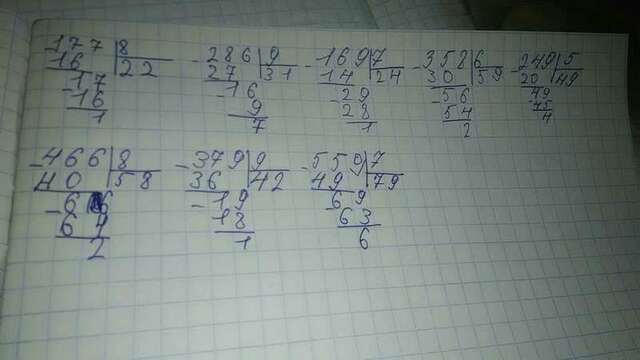 -177|8 -286|9 -169|7 -358|6 -249|5
16 22 27 31 14 24 30 59 20 49
-17 -16 -29 -56 49
16 9 28 54 -45
1 7 1 2 4
-466|8 -379|9 -559|7
40 58 36 42 49 79
-66 -19 69
64 18 -63
2 1 6